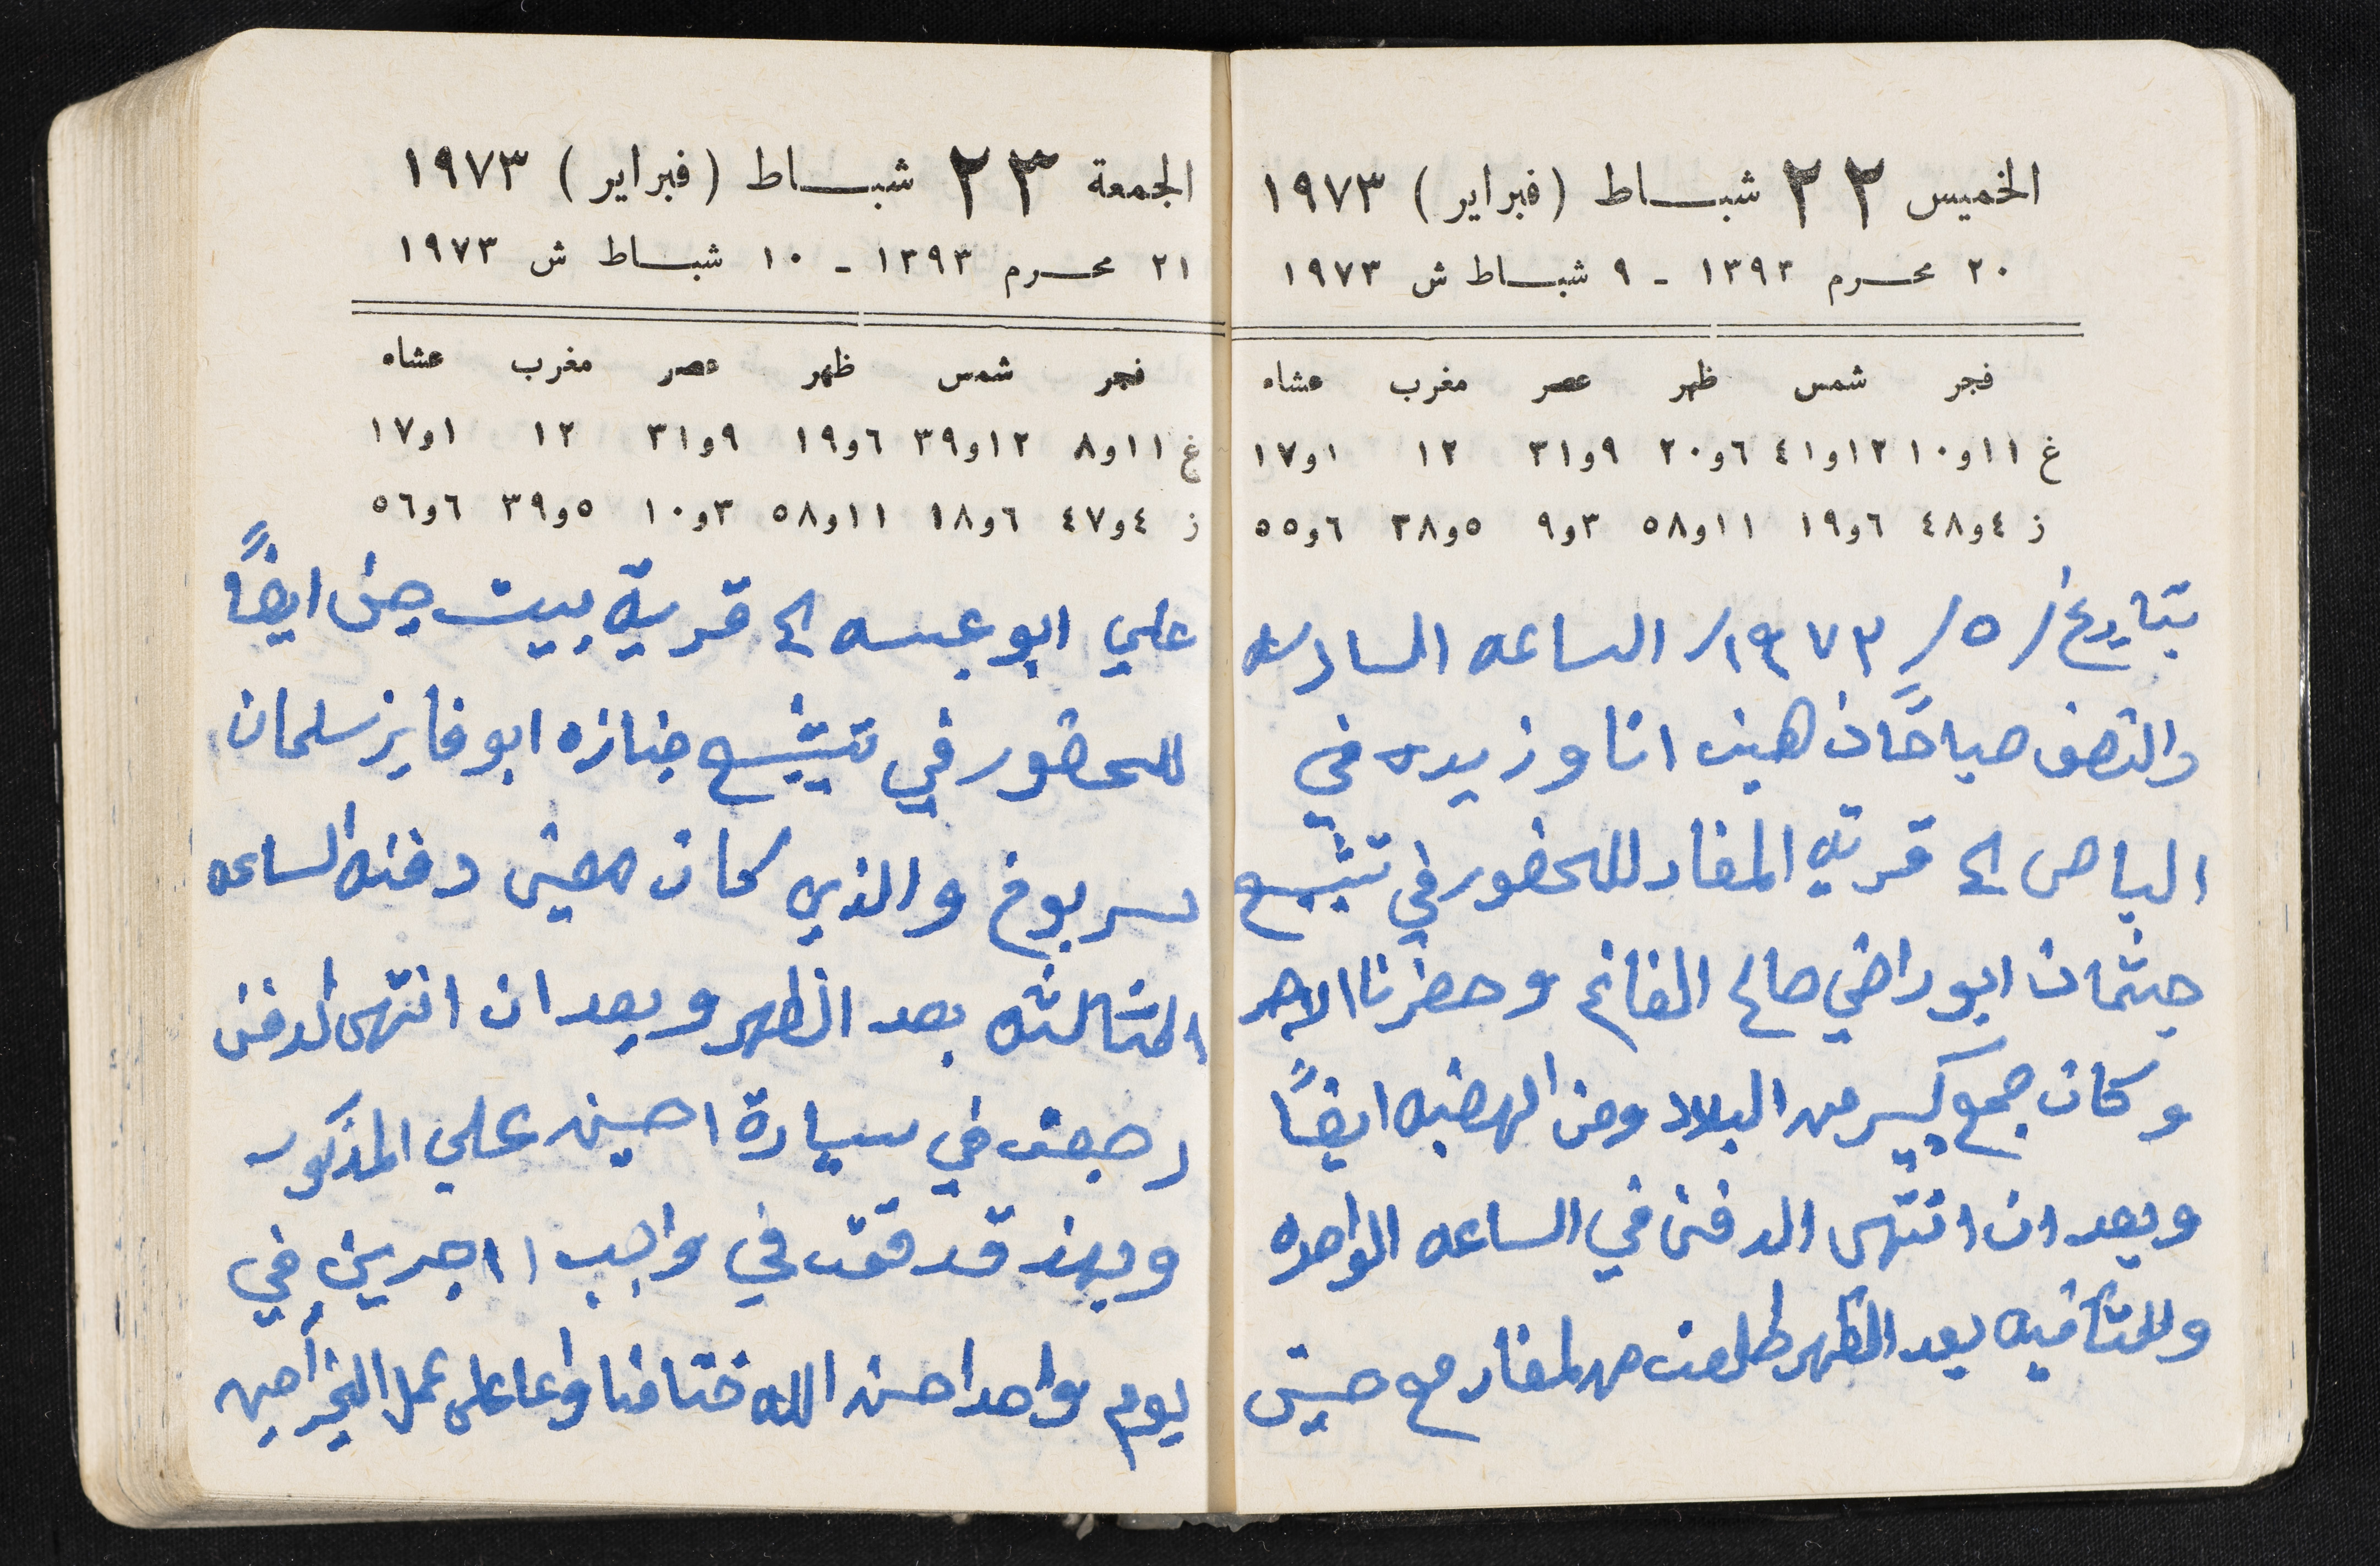 الخميس ٢٢ شباط (فبراير) ١٩٧٣
٢٠ محرم ١٣٩٣ - ٩ شباط ش ١٩٧٣
فجر شمس ظهر عصر مغرب عشاء
غ ١١و١٠ ١٢و٤١ ٦و٢٠ ٩و٣١ ١٢ ١و١٧
ز ٤و٤٨ ٦و١٩ ١١و٥٨ ٣و٩ ٥و٣٨ ٦و٥٥
بتاريخ / ٥ / ١٩٧٣/ الساعه السادسه
والنصف صباحًا ذهبت انا وزيده في
الباص الى قرية المغار للحضور في تشيع
جيثمان ابو راضي صالح الغانم وحضرنا الاجر
وكان جمع كبير من البلاد ومن الهضبه ايضًا
وبعد ان انتهى الدفن في الساعه الواحده
والثانيه بعد الظهر طلعت من المغار مع حسين
الجمعة ٢٣ شباط (فبراير) ١٩٧٣
٢١ محرم ١٣٩٣ - ١٠ شباط ش ١٩٧٣
فجر شمس ظهر عصر مغرب عشاء
غ ١١و٨ ١٢و٣٩ ٦و١٩ ٩و٣١ ١٢ ١و١٧
ز ٤و٤٧ ٦و١٨ ١١و٥٨ ٣و١٠ ٥و٣٩ ٦و٥٦
علي ابو عبسه الى قرية بيت جن ايضًا
للحضور في تشيع جنازه ابو فايز سلمان
سربوخ والذي كان معين دفنه الساعه
الثالثه بعد الظهر وبعد ان انتهى الدفن
رجعت في سيارة احسين علي المذكور
وبهذ قد قمت في واجب اجرين في
يوم واحد احسن الله ختامنا واعا على عمل الخير امين